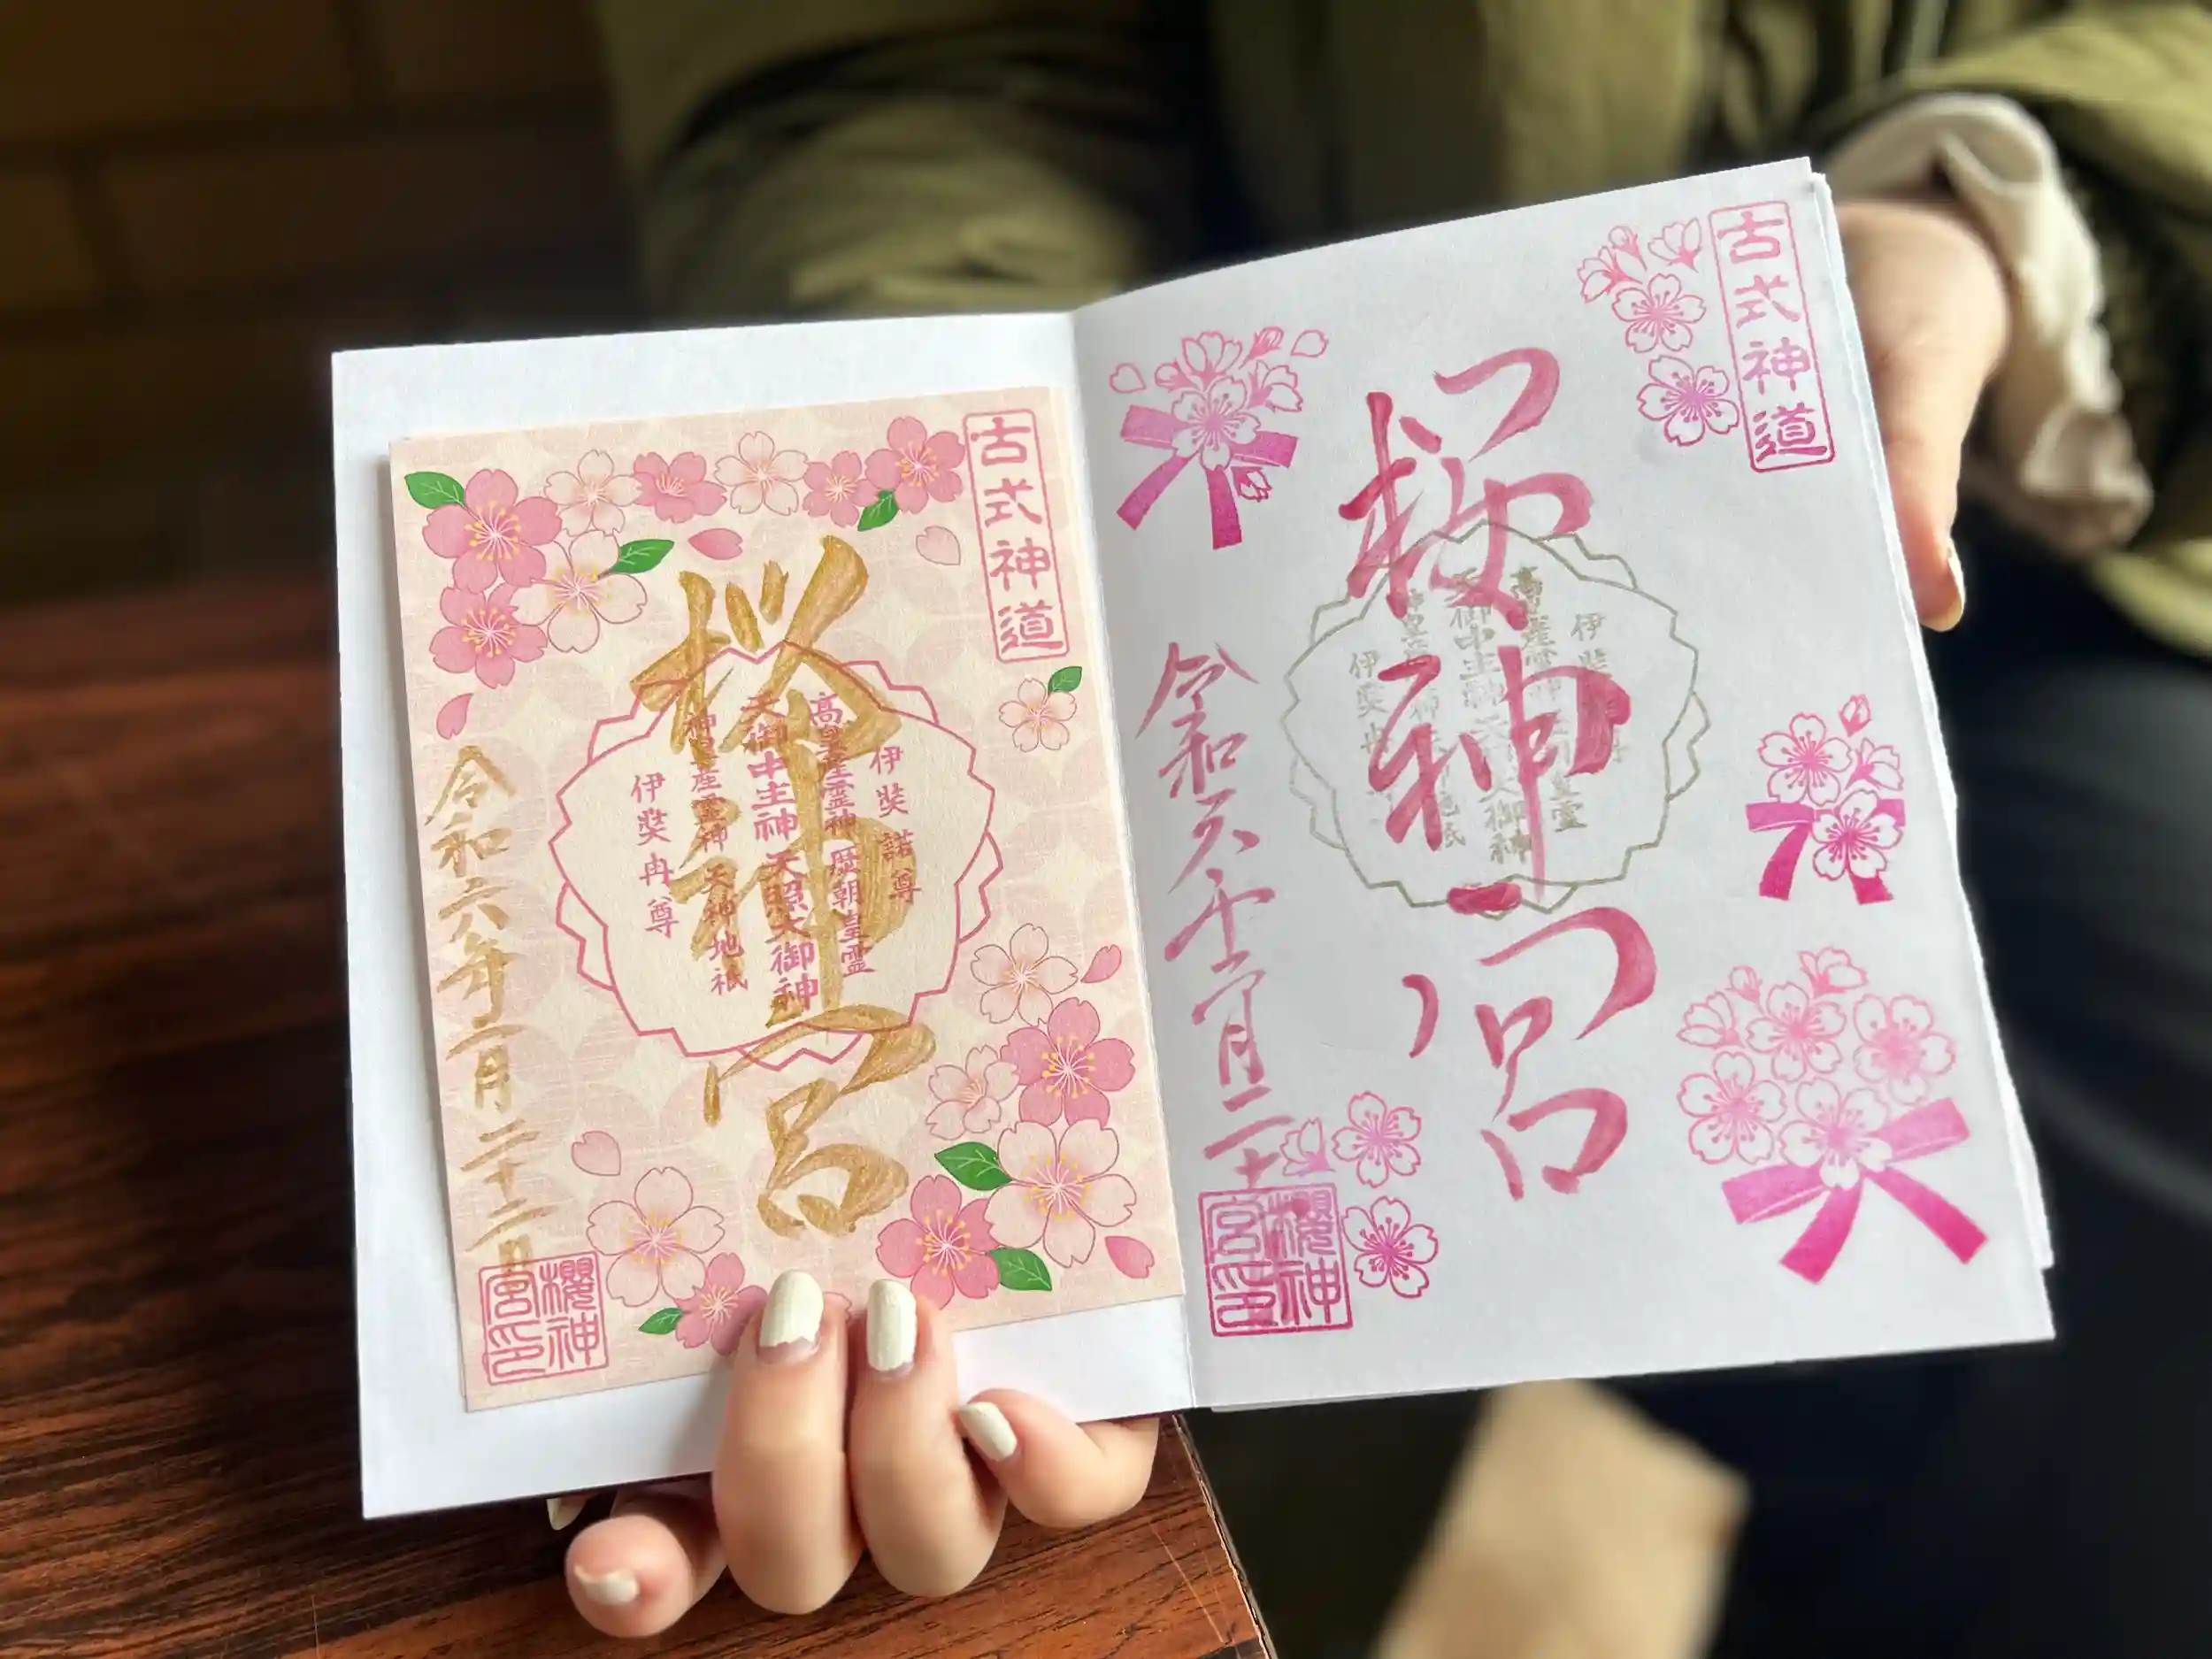 古式神道
桜神宮
伊奘諾尊
高皇産霊神 歴朝皇霊
天御中主神 天照大御神
神皇産霊神 天神地祇
伊奘冉尊
令和六年二月二十二日
櫻神宮印
古式神道
桜神宮
伊奘
天御中主神
伊奘冉
令和六年十二月二十
櫻神宮印